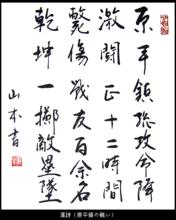 原平鎮攻命降
激闘正十二時間
斃傷戰友百余名
乾坤一擲敵塁墜
山本書
漢詩（原平鎮の戦い）